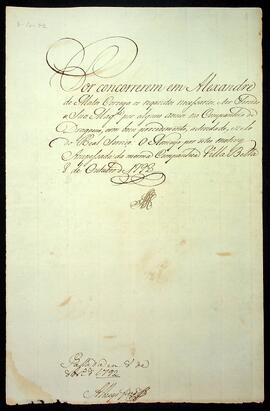 Por concorrerem em Alexandre
de Mello Correya os requizitos necessarios, e ter Servido
a Sua Mag.e por alguns annos na Companhia de
Dragoens, com bom procedimento, actividade, e zelo
do Real Serviço: O Nomeyo por estes motivos
Anspessada da mesma Companhia. Villa Bella
8 de Outubro de 1792
Passada em 8 de
1792